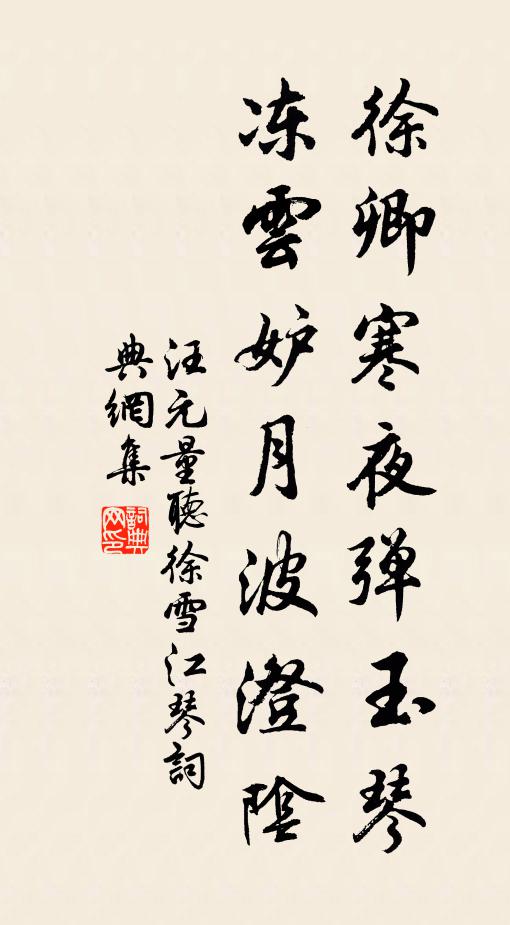 徐卿寒夜弹玉琴
冻雲妒月波澄陰
汪元量聽徐雪江琴詞
典網集
詞典
网印